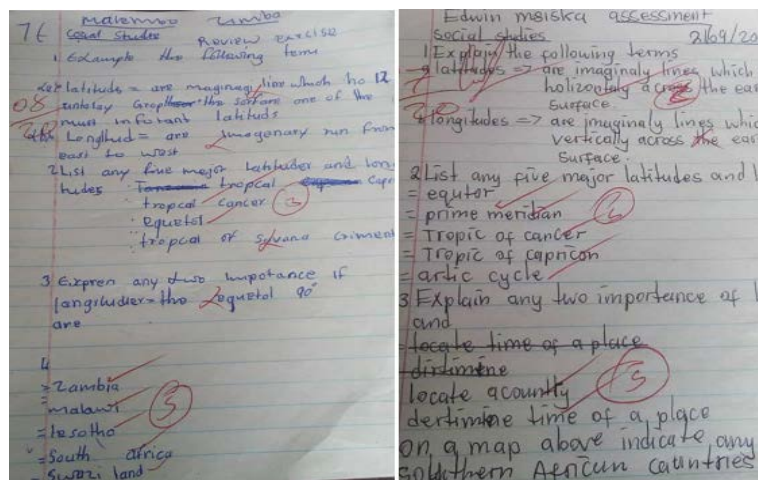 7E
Malembo Zimba
Social Studies
Review exercise
1 Example the following term
latitudes = are imaginag line which ho 12
08
20
the sorfare one of the
must infotant latituds
Longitud = are imaganary run from
east to west
2 List any five major latituder and lon
tudes tropcal Capr
tropcal cancer
equetol
tropcal of
3
3 Expren any two impotance if
langitudier = the equetol 90°
are
4
Zambia
= malawi
= Lesotho
= South africa
- Swazi land
5
Edwin msiska assessment
Social studies 21/09/20
1 Explain the following terms
latitudes => are imaginaly lines which
holizontaly across the ear
Surface.
longitudes => are imaginaly lines whic
vertically across the ear
Surface.
2 List any five major latitudes and l
= equtor
= prime meridian
= Tropic of cancer
= Tropic of capricon
= artic cycle
3 Explain any two importance of l
and
= locate time of a place
locate acountly
dertimine time of a place
on a map above indicate any
Southern African Countries